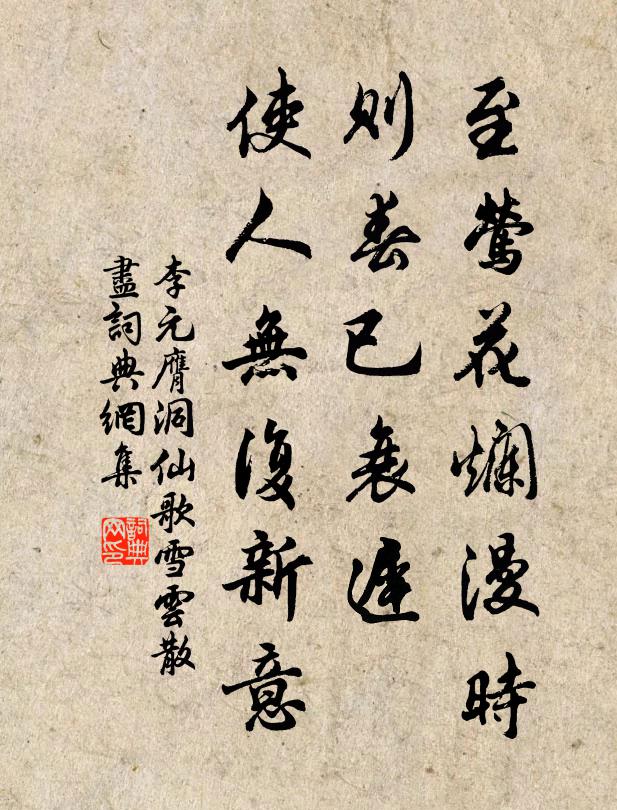 至鶯花爛漫時
則春已衰遲
使人無復新意
李元膺洞仙歌雪雲散
盡詞典網集
詞典網印